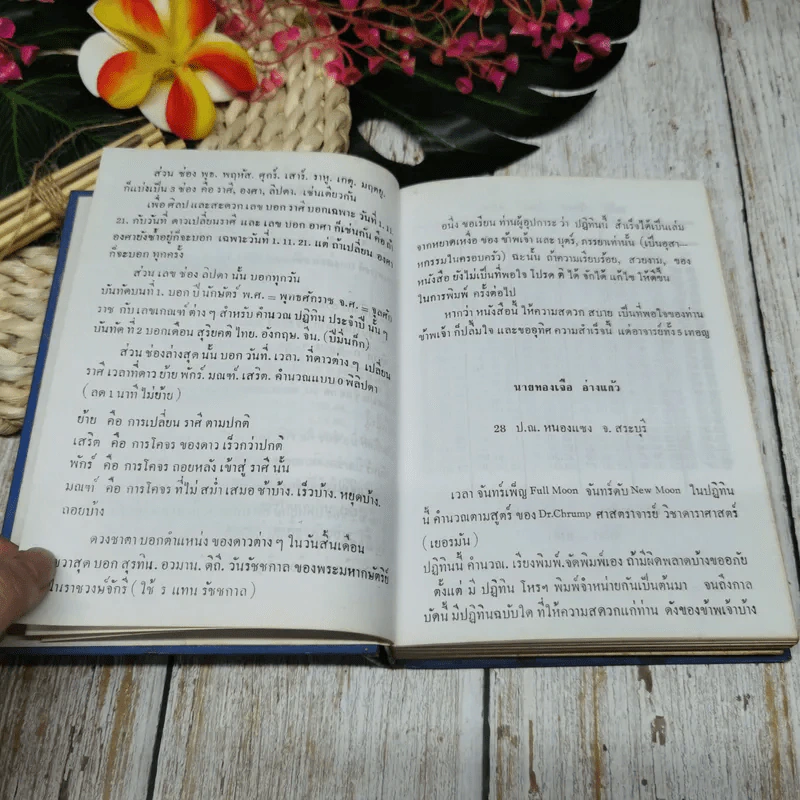 ส่วน ช่อง พุธ. พฤหัส. ศุกร์. เสาร์. ราหู. เกตุ. มฤตยู.
ก็แบ่งเป็น 3 ช่อง คือ ราศี, องศา, ลิปดา. เช่นเดียวกัน
เพื่อ ศิลป และสะดวก เลข บอก ราศี บอกเฉพาะ วันที่ 1. 11.
21. กับวันที่ ดาวเปลี่ยนราศี และ เลข บอก อาศา ก็เช่นกัน คือ ถ้า
องศายังซ้ำอยู่ก็จะบอก เฉพาะวันที่ 1. 11. 21. แต่ ถ้าเปลี่ยน องศา
ก็จะบอก ทุกครั้ง
ส่วน เลข ช่อง ลิปดา นั้น บอกทุกวัน
บันทัดบนที่ 1. บอก ปี นักษัตร์ พ.ศ. = พุทธศักราช จ.ศ. = จุลศัก
ราช กับ เลขเกณฑ์ ต่าง ๆ สำหรับ คำนวณ ปฏิทิน ประจำปี นั้น ๆ
บันทัด ที่ 2 บอกเดือน สุริยคติ ไทย. อังกฤษ. จีน. (ปีมิ่นก๊ก)
ส่วน ช่องล่างสุด นั้น บอก วันที่. เวลา. ที่ดาวต่าง ๆ เปลี่ยน
ราศี เวลาที่ดาว ย้าย พักร์. มณฑ์. เสริต. คำนวณแบบ 0 พิลิปดา
( ลด 1 นาที ไม่ย้าย )
ย้าย คือ การเปลี่ยน ราศี ตามปกติ
เสริต คือ การโคจร ของดาว เร็วกว่าปกติ
พักร์ คือ การโคจร ถอยหลัง เข้าสู่ ราศี นั้น
มณฑ์ คือ การโคจร ที่ไม่ สม่ำ เสมอ ช้าบ้าง. เร็วบ้าง. หยุดบ้าง.
ถอยบ้าง
ดวงชาตา บอกตำแหน่ง ของดาวต่าง ๆ ในวันสิ้นเดือน
ขวาสุด บอก สุรทิน. อวมาน. ดิถี. วันรัชชกาล ของพระมหากษัตริย์
ในราชวงษ์จักรี ( ใช้ ร แทน รัชชกาล )
อนึ่ง ขอเรียน ท่านผู้อุปการะ ว่า ปฏิทินนี้ สำเร็จได้เป็นเล่ม
จากหยาดเหงื่อ ของ ข้าพเจ้า และ บุตร์, ภรรยาเท่านั้น (เป็นอุสา-
หกรรมในครอบครัว) ฉะนั้น ถ้าความเรียบร้อย, สวยงาม, ของ
หนังสือ ยังไม่เป็นที่พอใจ โปรด ติ ได้ จักได้ แก้ไข ให้ดีขึ้น
ในการพิมพ์ ครั้งต่อไป
หากว่า หนังสือนี้ ให้ความสดวก สบาย เป็นที่พอใจของท่าน
ข้าพเจ้า ก็ปลื้มใจ และขออุทิศ ความสำเร็จนี้ แด่อาจารย์ทั้ง 5 เทอญ
นายทองเจือ อ่างแก้ว
28 ป.ณ. หนองแซง จ. สระบุรี
เวลา จันทร์เพ็ญ Full Moon จันทร์ดับ New Moon ในปฏิทิน
นี้ คำนวณตามสูตร์ ของ Dr.Chrump ศาสตราจารย์ วิชาดาราศาสตร์
(เยอรมัน)
ปฏิทินนี้ คำนวณ. เรียงพิมพ์. จัดพิมพ์เอง ถ้ามีผิดพลาดบ้างขออภัย
ตั้งแต่ มี ปฏิทิน โหรๆ พิมพ์จำหน่ายกันเป็นต้นมา จนถึงกาล
บัดนี้ มีปฏิทินฉบับใด ที่ให้ความสดวกแก่ท่าน ดังของข้าพเจ้าบ้าง